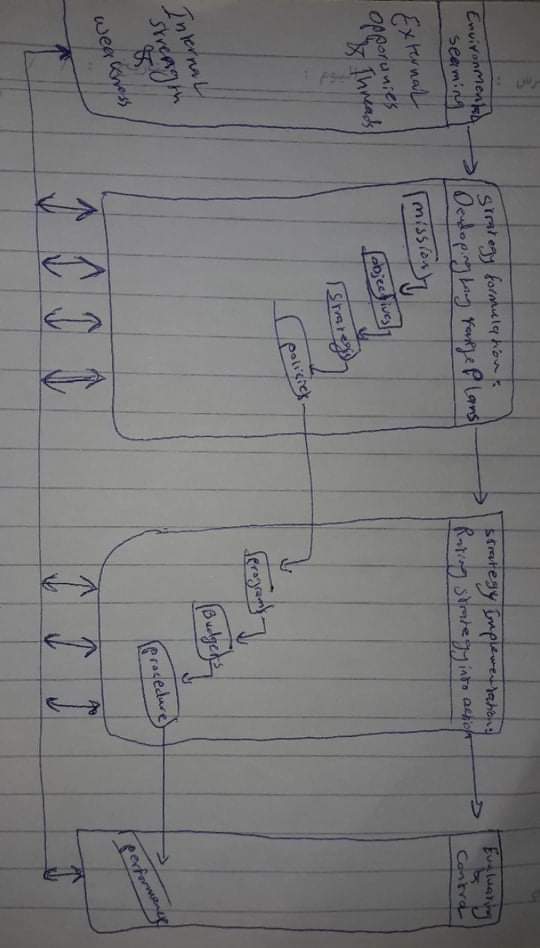 Environmental
Seaming
External
Opporunies
& Threads
Internal
strength
&
weakness
Strategy formulation:
Devloping long range Plans
mission
objectives
Strategy
policies
Strategy Implementation:
Puting Strategy into action
program
Budgets
procedure
Evaluating
&
Control
performance